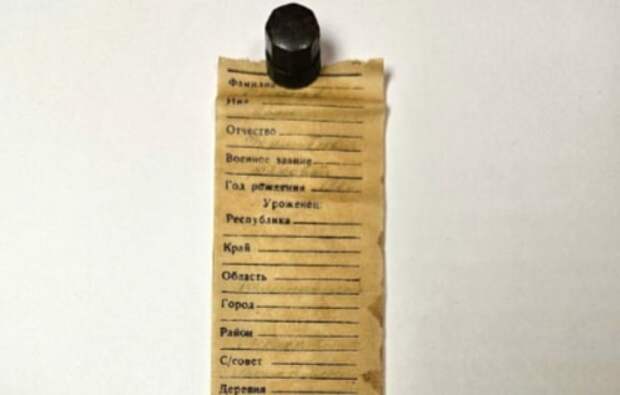 Фамилия
Имя
Отчество
Военное звание
Год рождения
Уроженец:
Республика
Край
Область
Город
Район
С/совет
Деревня